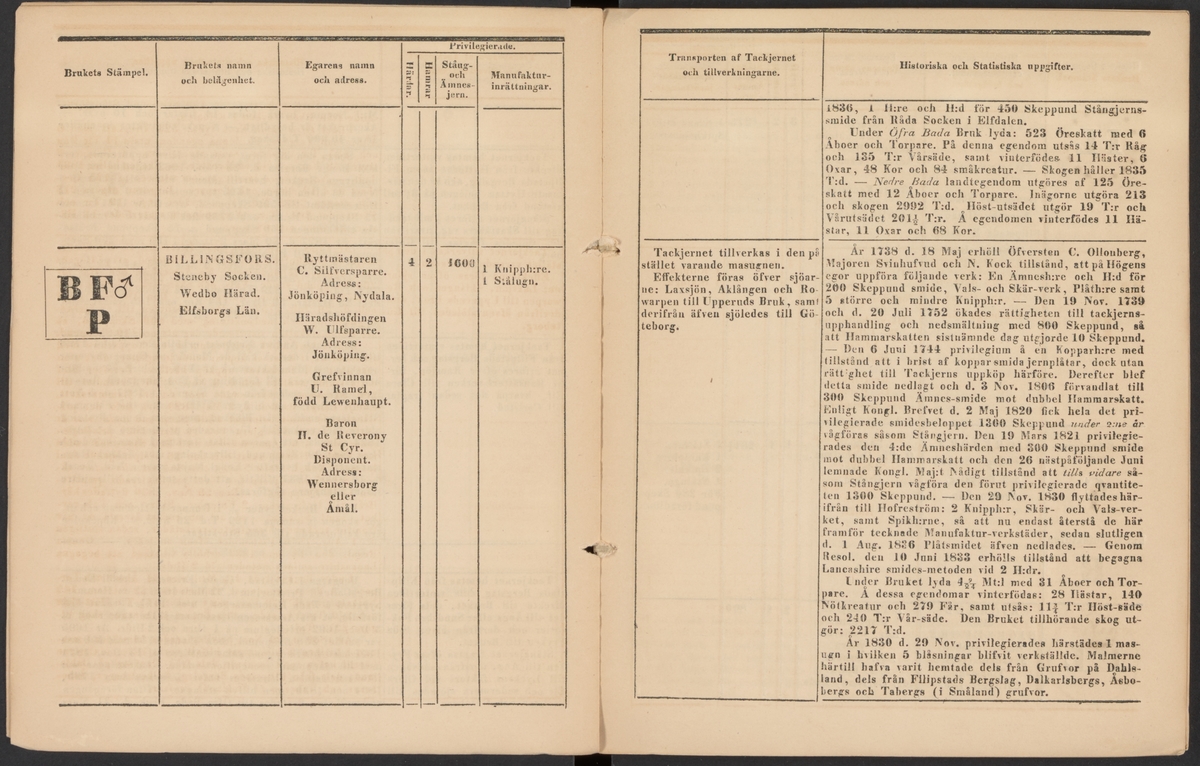 Brukets Stämpel.
Brukets namn
och belägenhet.
Egarens namn
och adress.
Privilegierade.
Härdar.
Hamrar
Stång-
och
Ämnes-
jern.
Manufaktur-
inrättningar.
B F♂
P
BILLINGSFORS.
Steneby Socken.
Wedbo Härad.
Elfsborgs Län.
Ryttmästaren
C. Silfversparre.
Adress:
Jönköping, Nydala.
Häradshöfdingen
W. Ulfsparre.
Adress:
Jönköping.
Grefvinnan
U. Ramel,
född Lewenhaupt.
Baron
H. de Reverony
St Cyr.
Disponent.
Adress:
Wennersborg
eller
Åmål.
4
2
1600
1 Knipph:re.
1 Stålugn.
Transporten af Tackjernet
och tillverkningarne.
Historiska och Statistiska uppgifter.
1836, 1 H:re och H:d för 450 Skeppund Stångjerns-
smide från Råda Socken i Elfdalen.
Under Öfra Bada Bruk lyda: 523 Öreskatt med 6
Åboer och Torpare. På denna egendom utsås 14 T:r Råg
och 135 T:r Vårsäde, samt vinterfödes 41 Häster, 6
Oxar, 48 Kor och 84 småkreatur. — Skogen håller 1835
T:d. — Nedre Bada landtegendom utgöres af 125 Öre-
skatt med 12 Åboer och Torpare. Inägorne utgöra 213
och skogen 2992 T:d. Höst-utsädet utgör 19 T:r och
Vårutsädet 201½ T:r. Å egendomen vinterfödes 11 Hä-
star, 11 Oxar och 68 Kor.
Tackjernet tillverkas i den på
stället varande masugnen.
Effekterne föras öfver sjöar-
ne: Laxsjön, Aklången och Ro-
warpen till Upperuds Bruk, samt
derifrån äfven sjöledes till Gö-
teborg.
År 1738 d. 18 Maj erhöll Öfversten C. Ollonberg,
Majoren Svinhufvud och N. Kock tillstånd, att på Högens
egor uppföra följande verk: En Ämnesh:re och H:d för
200 Skeppund smide, Vals- och Skär-verk, Plåth:re samt
5 större och mindre Knipph:r. — Den 19 Nov. 1739
och d. 20 Juli 1752 ökades rättigheten till tackjerns-
upphandling och nedsmältning med 800 Skeppund, så
att Hammarskatten sistnämnde dag utgjorde 10 Skeppund.
— Den 6 Juni 1744 privilegium å en Kopparh:re med
tillstånd att i brist af koppar smida jernplåtar, dock utan
rättighet till Tackjerns uppköp härföre. Derefter blef
detta smide nedlagt och d. 3 Nov. 1806 förvandlat till
300 Skeppund Ämnes-smide mot dubbel Hammarskatt.
Enligt Kongl. Brefvet d. 2 Maj 1820 fick hela det pri-
vilegierade smidesbeloppet 1300 Skeppund under 2:ne år
vågföras såsom Stångjern. Den 19 Mars 1821 privilegie-
rades den 4:de Ämneshärden med 300 Skeppund smide
mot dubbel Hammarskatt och den 26 nästpåföljande Juni
lemnade Kongl. Maj:t Nådigt tillstånd att tills vidare så-
som Stångjern vågföra den förut privilegierade qvantite-
ten 1300 Skeppund. — Den 29 Nov. 1830 flyttades här-
ifrån till Hofreström: 2 Knipph:r, Skär- och Vals-ver-
ket, samt Spikh:rne, så att nu endast återstå de här
framför tecknade Manufaktur-verkstäder, sedan slutligen
d. 1 Aug. 1836 Plåtsmidet äfven nedlades. — Genom
Resol. den 10 Juni 1833 erhölls tillstånd att begagna
Lancashire smides-metoden vid 2 H:dr.
Under Bruket lyda Mt:l med 31 Åboer och Tor-
pare. Å dessa egendomar vinterfödas: 28 Hästar, 140
Nötkreatur och 279 Får, samt utsås: 11¾ T:r Höst-säde
och 240 T:r Vår-säde. Den Bruket tillhörande skog ut-
gör: 2217 T:d.
År 1830 d. 29 Nov. privilegierades härstädes 1 mas-
ugn i hvilken 5 blåsningar blifvit verkställde. Malmerne
härtill hafva varit hemtade dels från Grufvor på Dahls-
land, dels från Filipstads Bergslag, Dalkarlsbergs, Åsbo-
bergs och Tabergs (i Småland) grufvor.